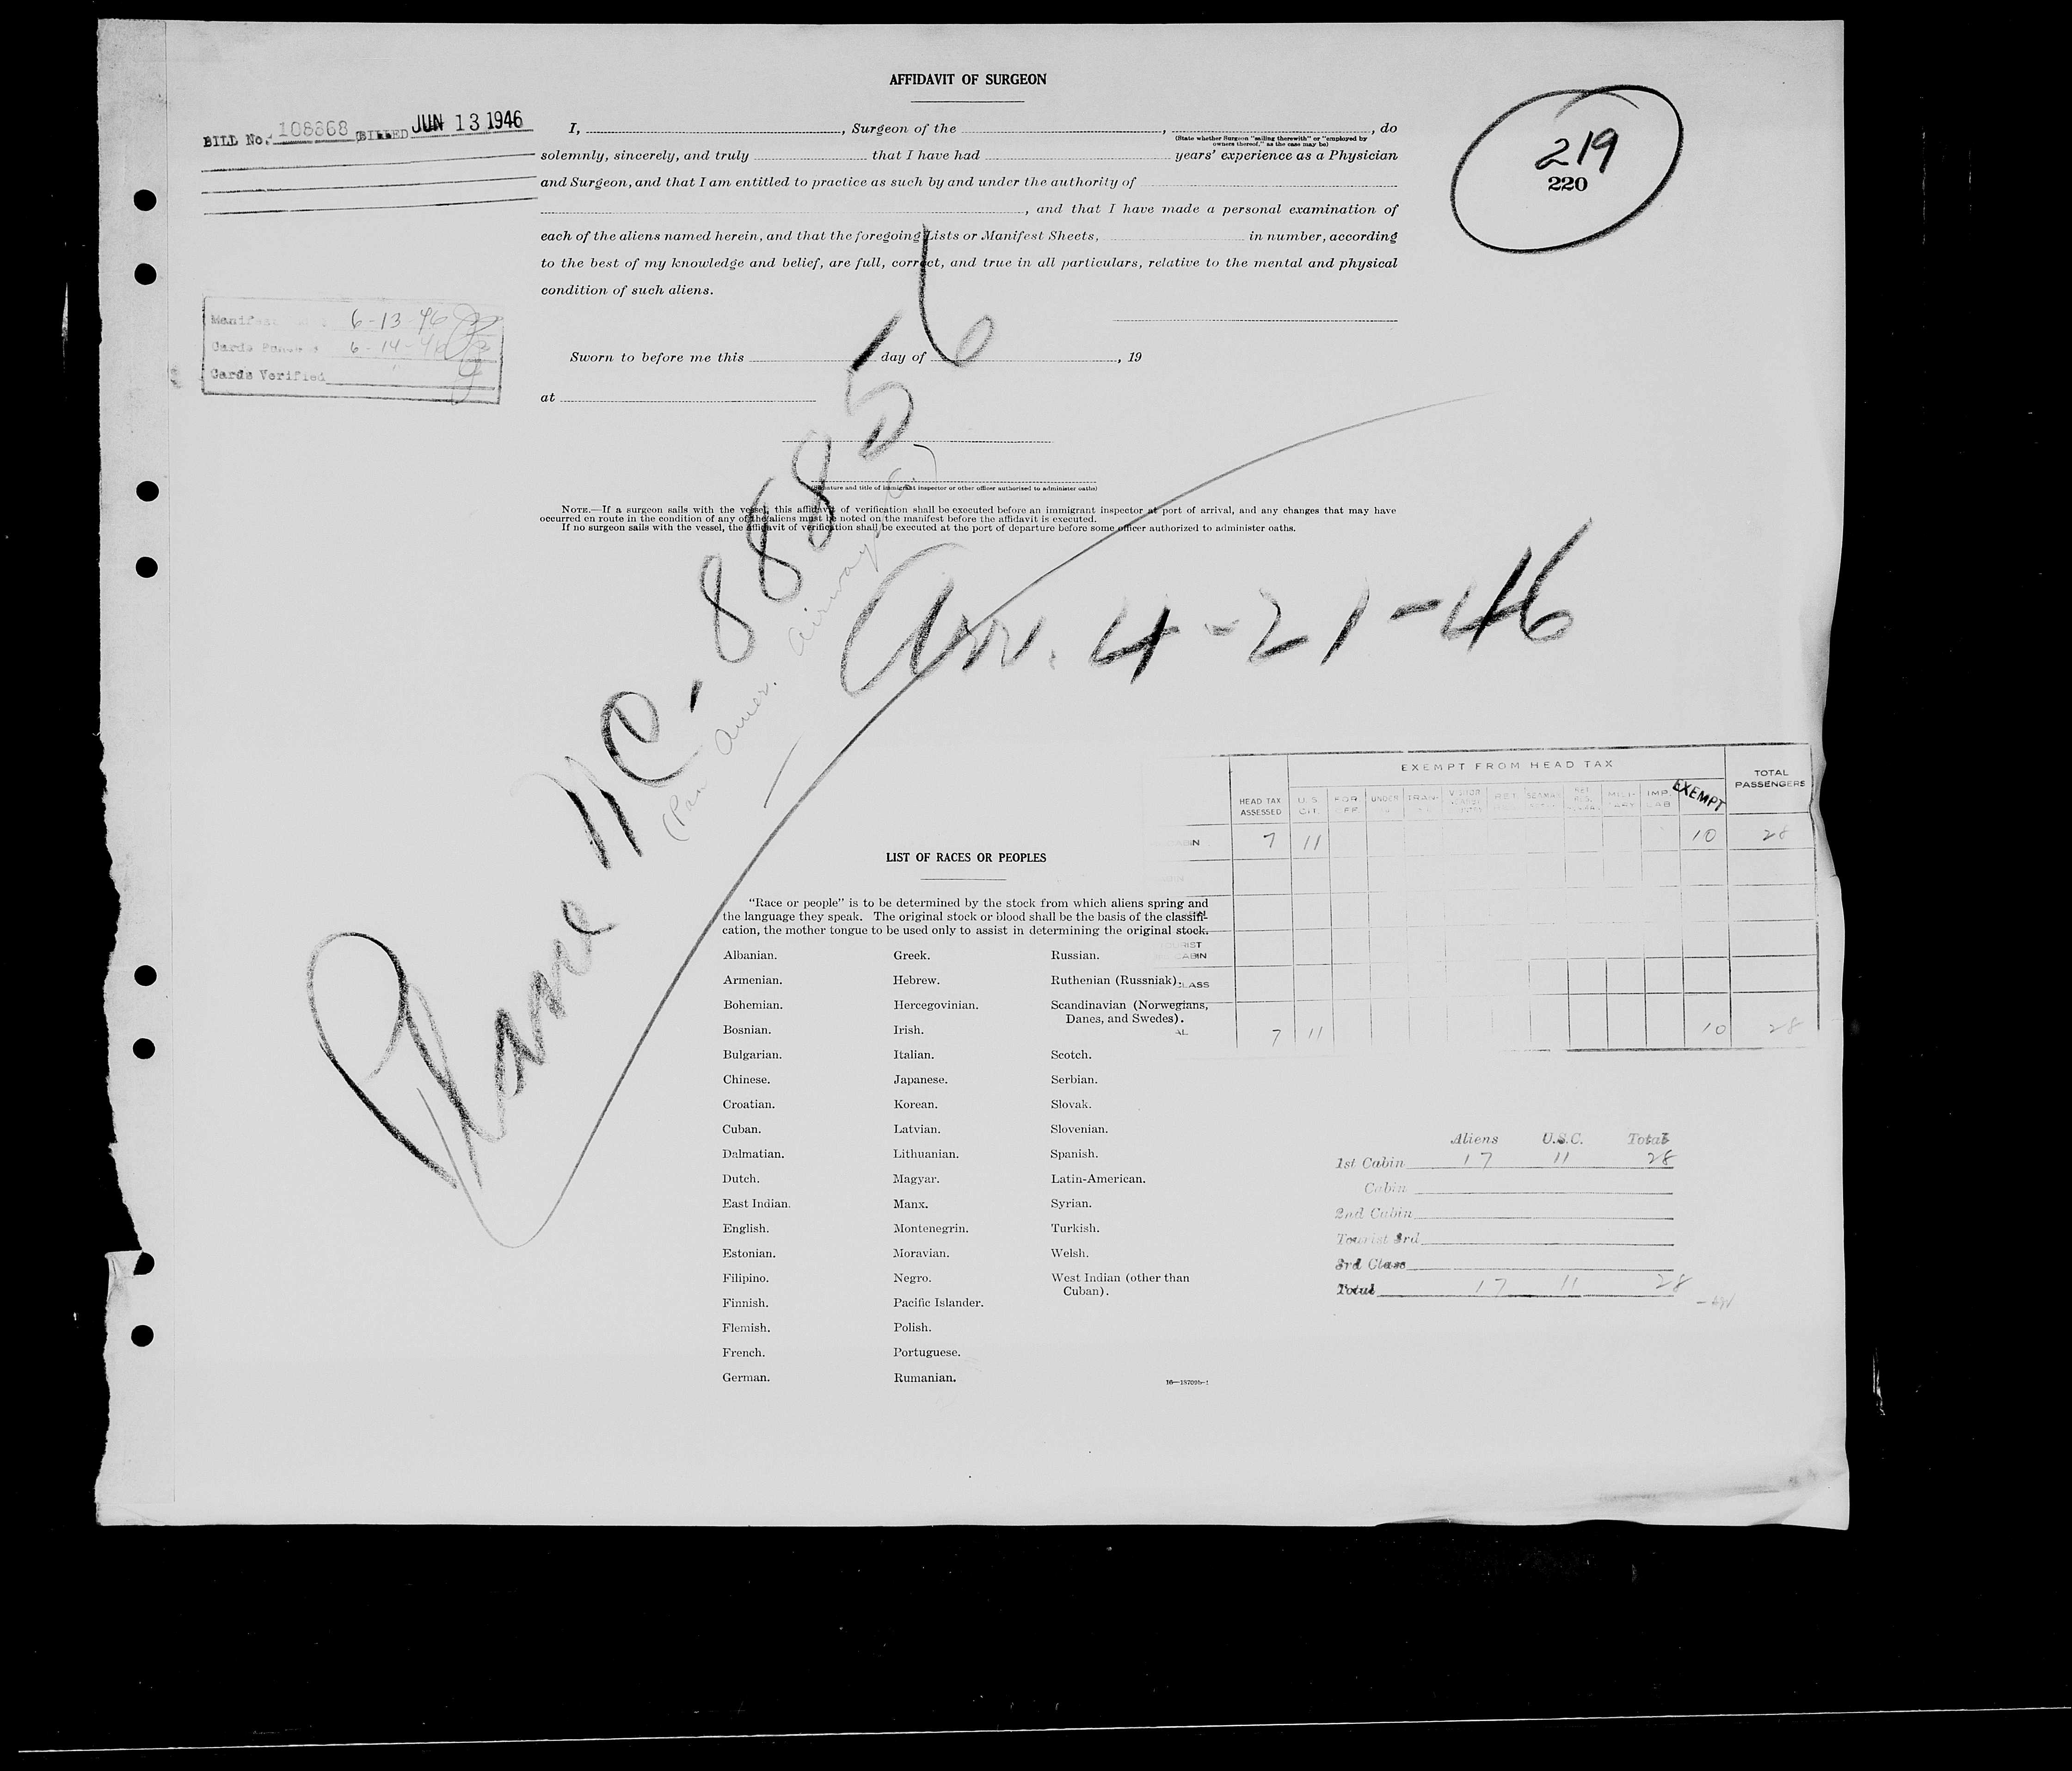 AFFIDAVIT OF SURGEON
BILL No. 108868 BILLED JUN 13 1946
219
220
I, , Surgeon of the , , do
(State whether Surgeon "sailing therewith" or "employed by
owners thereof," as the case may be)
solemnly, sincerely, and truly that I have had years' experience as a Physician
and Surgeon, and that I am entitled to practice as such by and under the authority of
, and that I have made a personal examination of
each of the aliens named herein, and that the foregoing Lists or Manifest Sheets, in number, according
to the best of my knowledge and belief, are full, correct, and true in all particulars, relative to the mental and physical
condition of such aliens.
Manifest 6-13-46
Cards 6-14-46
Cards Verified
Sworn to before me this day of , 19
at
(Signature and title of immigrant inspector or other officer authorized to administer oaths)
NOTE.—If a surgeon sails with the vessel, this affidavit of verification shall be executed before an immigrant inspector at port of arrival, and any changes that may have
occurred en route in the condition of any of the aliens must be noted on the manifest before the affidavit is executed.
If no surgeon sails with the vessel, the affidavit of verification shall be executed at the port of departure before some officer authorized to administer oaths.
Plane NC-88856
(Pan Amer. Airways
Arr. 4-21-46
EXEMPT FROM HEAD TAX
HEAD TAX ASSESSED U.S. CIT. FOR OFF UNDER TRAN- RET. SEAMAN MILI- IMP. EXEMPT TOTAL PASSENGERS
CABIN 7 11 10 28
TOURIST
CABIN
CLASS
7 11 10 28
LIST OF RACES OR PEOPLES
"Race or people" is to be determined by the stock from which aliens spring and
the language they speak. The original stock or blood shall be the basis of the classifi-
cation, the mother tongue to be used only to assist in determining the original stock.
Albanian. Greek. Russian.
Armenian. Hebrew. Ruthenian (Russniak).
Bohemian. Hercegovinian. Scandinavian (Norwegians,
Danes, and Swedes).
Bosnian. Irish.
Bulgarian. Italian. Scotch.
Chinese. Japanese. Serbian.
Croatian. Korean. Slovak.
Cuban. Latvian. Slovenian.
Dalmatian. Lithuanian. Spanish.
Dutch. Magyar. Latin-American.
East Indian. Manx. Syrian.
English. Montenegrin. Turkish.
Estonian. Moravian. Welsh.
Filipino. Negro. West Indian (other than
Cuban).
Finnish. Pacific Islander.
Flemish. Polish.
French. Portuguese.
German. Rumanian.
Aliens U.S.C. Total
1st Cabin 17 11 28
Cabin
2nd Cabin
Tourist 3rd
3rd Class
Total 17 11 28